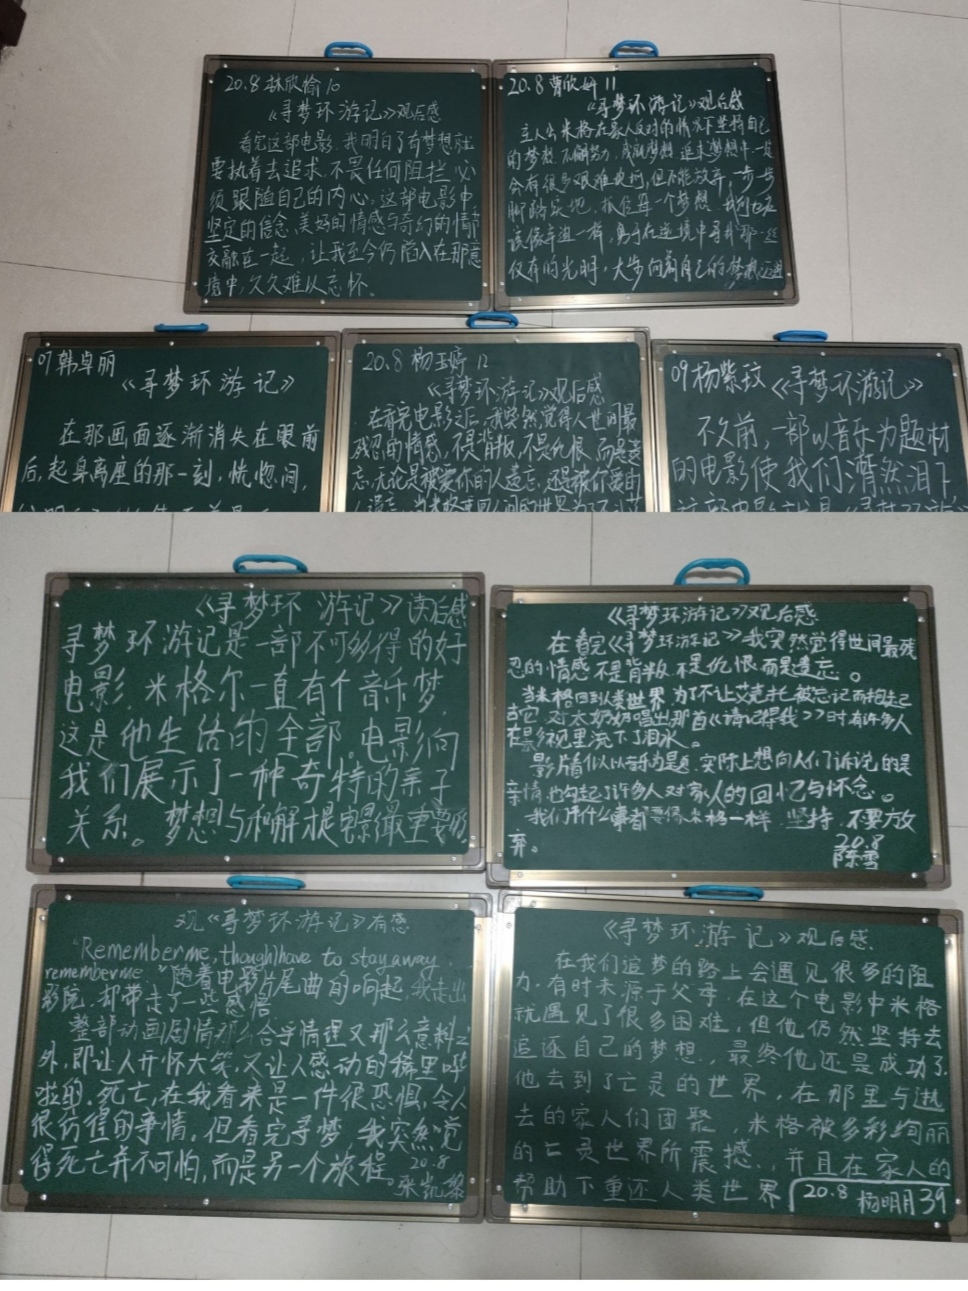 20.8 林欣愉 10
《寻梦环游记》观后感
看完这部电影,我明白了有梦想就
要执着去追求,不畏任何阻拦,必
须跟随自己的内心,这部电影中
坚定的信念,美好的情感与奇幻的情节
交融在一起,让我至今仍陷入在那意
境中,久久难以忘怀。
20.8 曹欣妍 11
《寻梦环游记》观后感
主人公米格在家人反对的情况下坚持自己
的梦想,不懈努力,成就梦想,追求梦想中一定
会有很多艰难坎坷,但不能放弃,一步步
脚踏实地,抓住每一个梦想,我们也应
该像米格一样,勇于在逆境中寻找那一丝
仅有的光明,大步向前自己的梦想迈进
07 韩卓丽
《寻梦环游记》
在那画面逐渐消失在眼前
后,起身离座的那一刻,恍惚间,
20.8 杨玉婷 12
《寻梦环游记》观后感
在看完电影之后,我突然觉得人世间最
残忍的情感,不是背叛,不是仇恨,而是遗
忘,无论是被爱你的人遗忘,还是被你爱的
09 杨紫玟《寻梦环游记》
不久前,一部以音乐为题材
的电影使我们潸然泪下
《寻梦环 游记》读后感
寻梦环游记是一部不可多得的好
电影,米格尔一直有个音乐梦,
这是他生活的全部。电影向
我们展示了一种奇特的亲子
关系。梦想与和解才是电影最重要的
《寻梦环游记》观后感
在看完《寻梦环游记》我突然觉得世间最残
忍的情感不是背叛不是仇恨而是遗忘。
当米格回到人类世界,为了不让艾克托被忘记而抱起
吉它,对太奶奶唱出那首《请记得我》时有许多人
在影视里流下了泪水。
影片看似以音乐为题,实际上想向人们诉说的是
亲情也勾起了许多人对家人的回忆与怀念。
我们干什么事都要像米格一样 坚持,不要放
弃。
20.8
陈雪
观《寻梦环游记》有感
"Remember me, though I have to stay away
remember me."随着电影片尾曲的响起,我走出
影院,却带走了一些感悟
整部动画剧情那么合乎情理又那么意料之
外,即让人开怀大笑,又让人感动的稀里哗
啦的,死亡,在我看来是一件很恐惧,令人
很彷徨的事情。但看完寻梦,我突然觉
得死亡并不可怕,而是另一个旅程。
20.8
张凯黎
《寻梦环游记》观后感
在我们追梦的路上会遇见很多的阻
力,有时来源于父母,在这个电影中米格
就遇见了很多困难,但他仍然坚持去
追逐自己的梦想,最终他还是成功了,
他去到了亡灵的世界,在那里与逝
去的家人们团聚,米格被多彩绚丽
的亡灵世界所震撼,并且在家人的
帮助下重还人类世界
20.8 杨明月 39